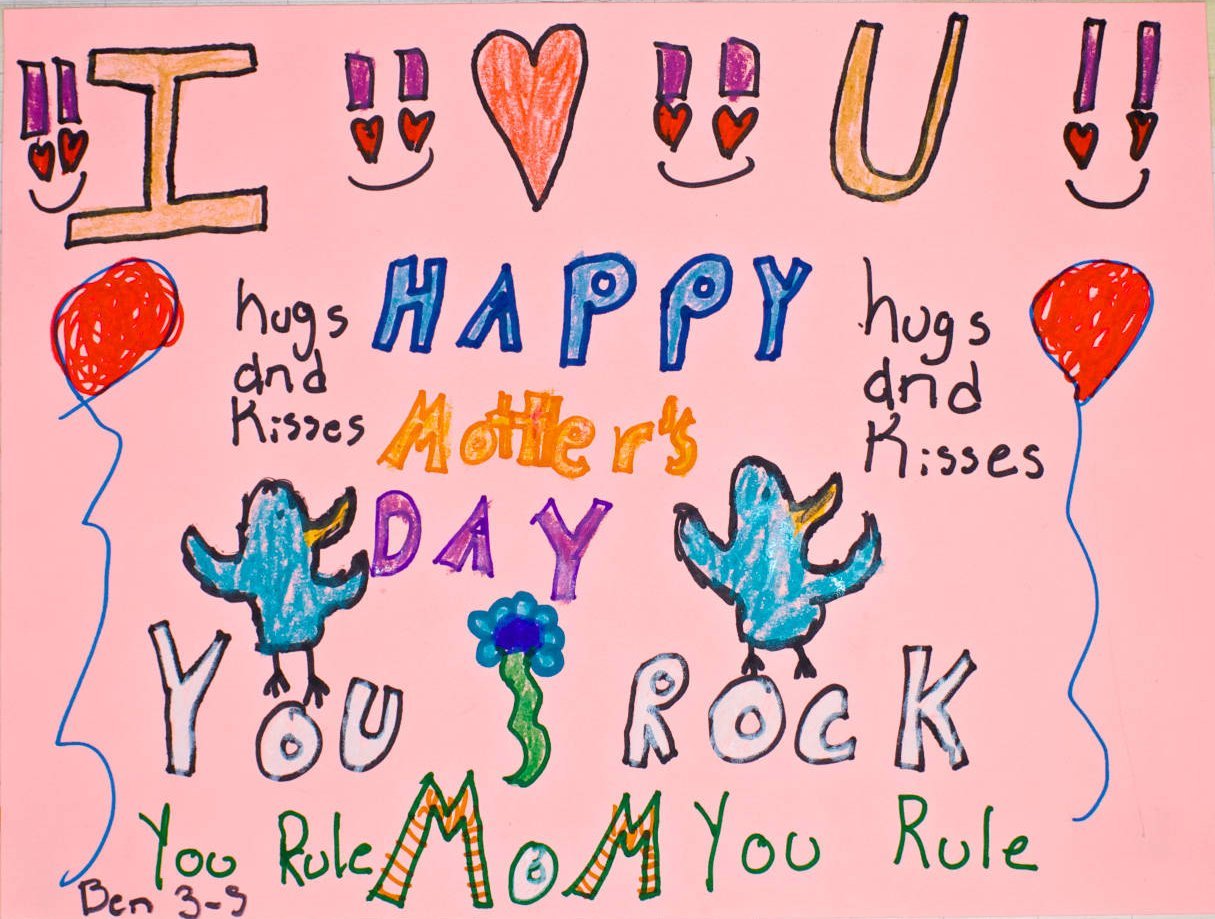 I U
HAPPY
hugs
and
Kisses
Mother's
hugs
and
Kisses
DAY
YOU ROCK
You Rule MOM You Rule
Ben 3-S